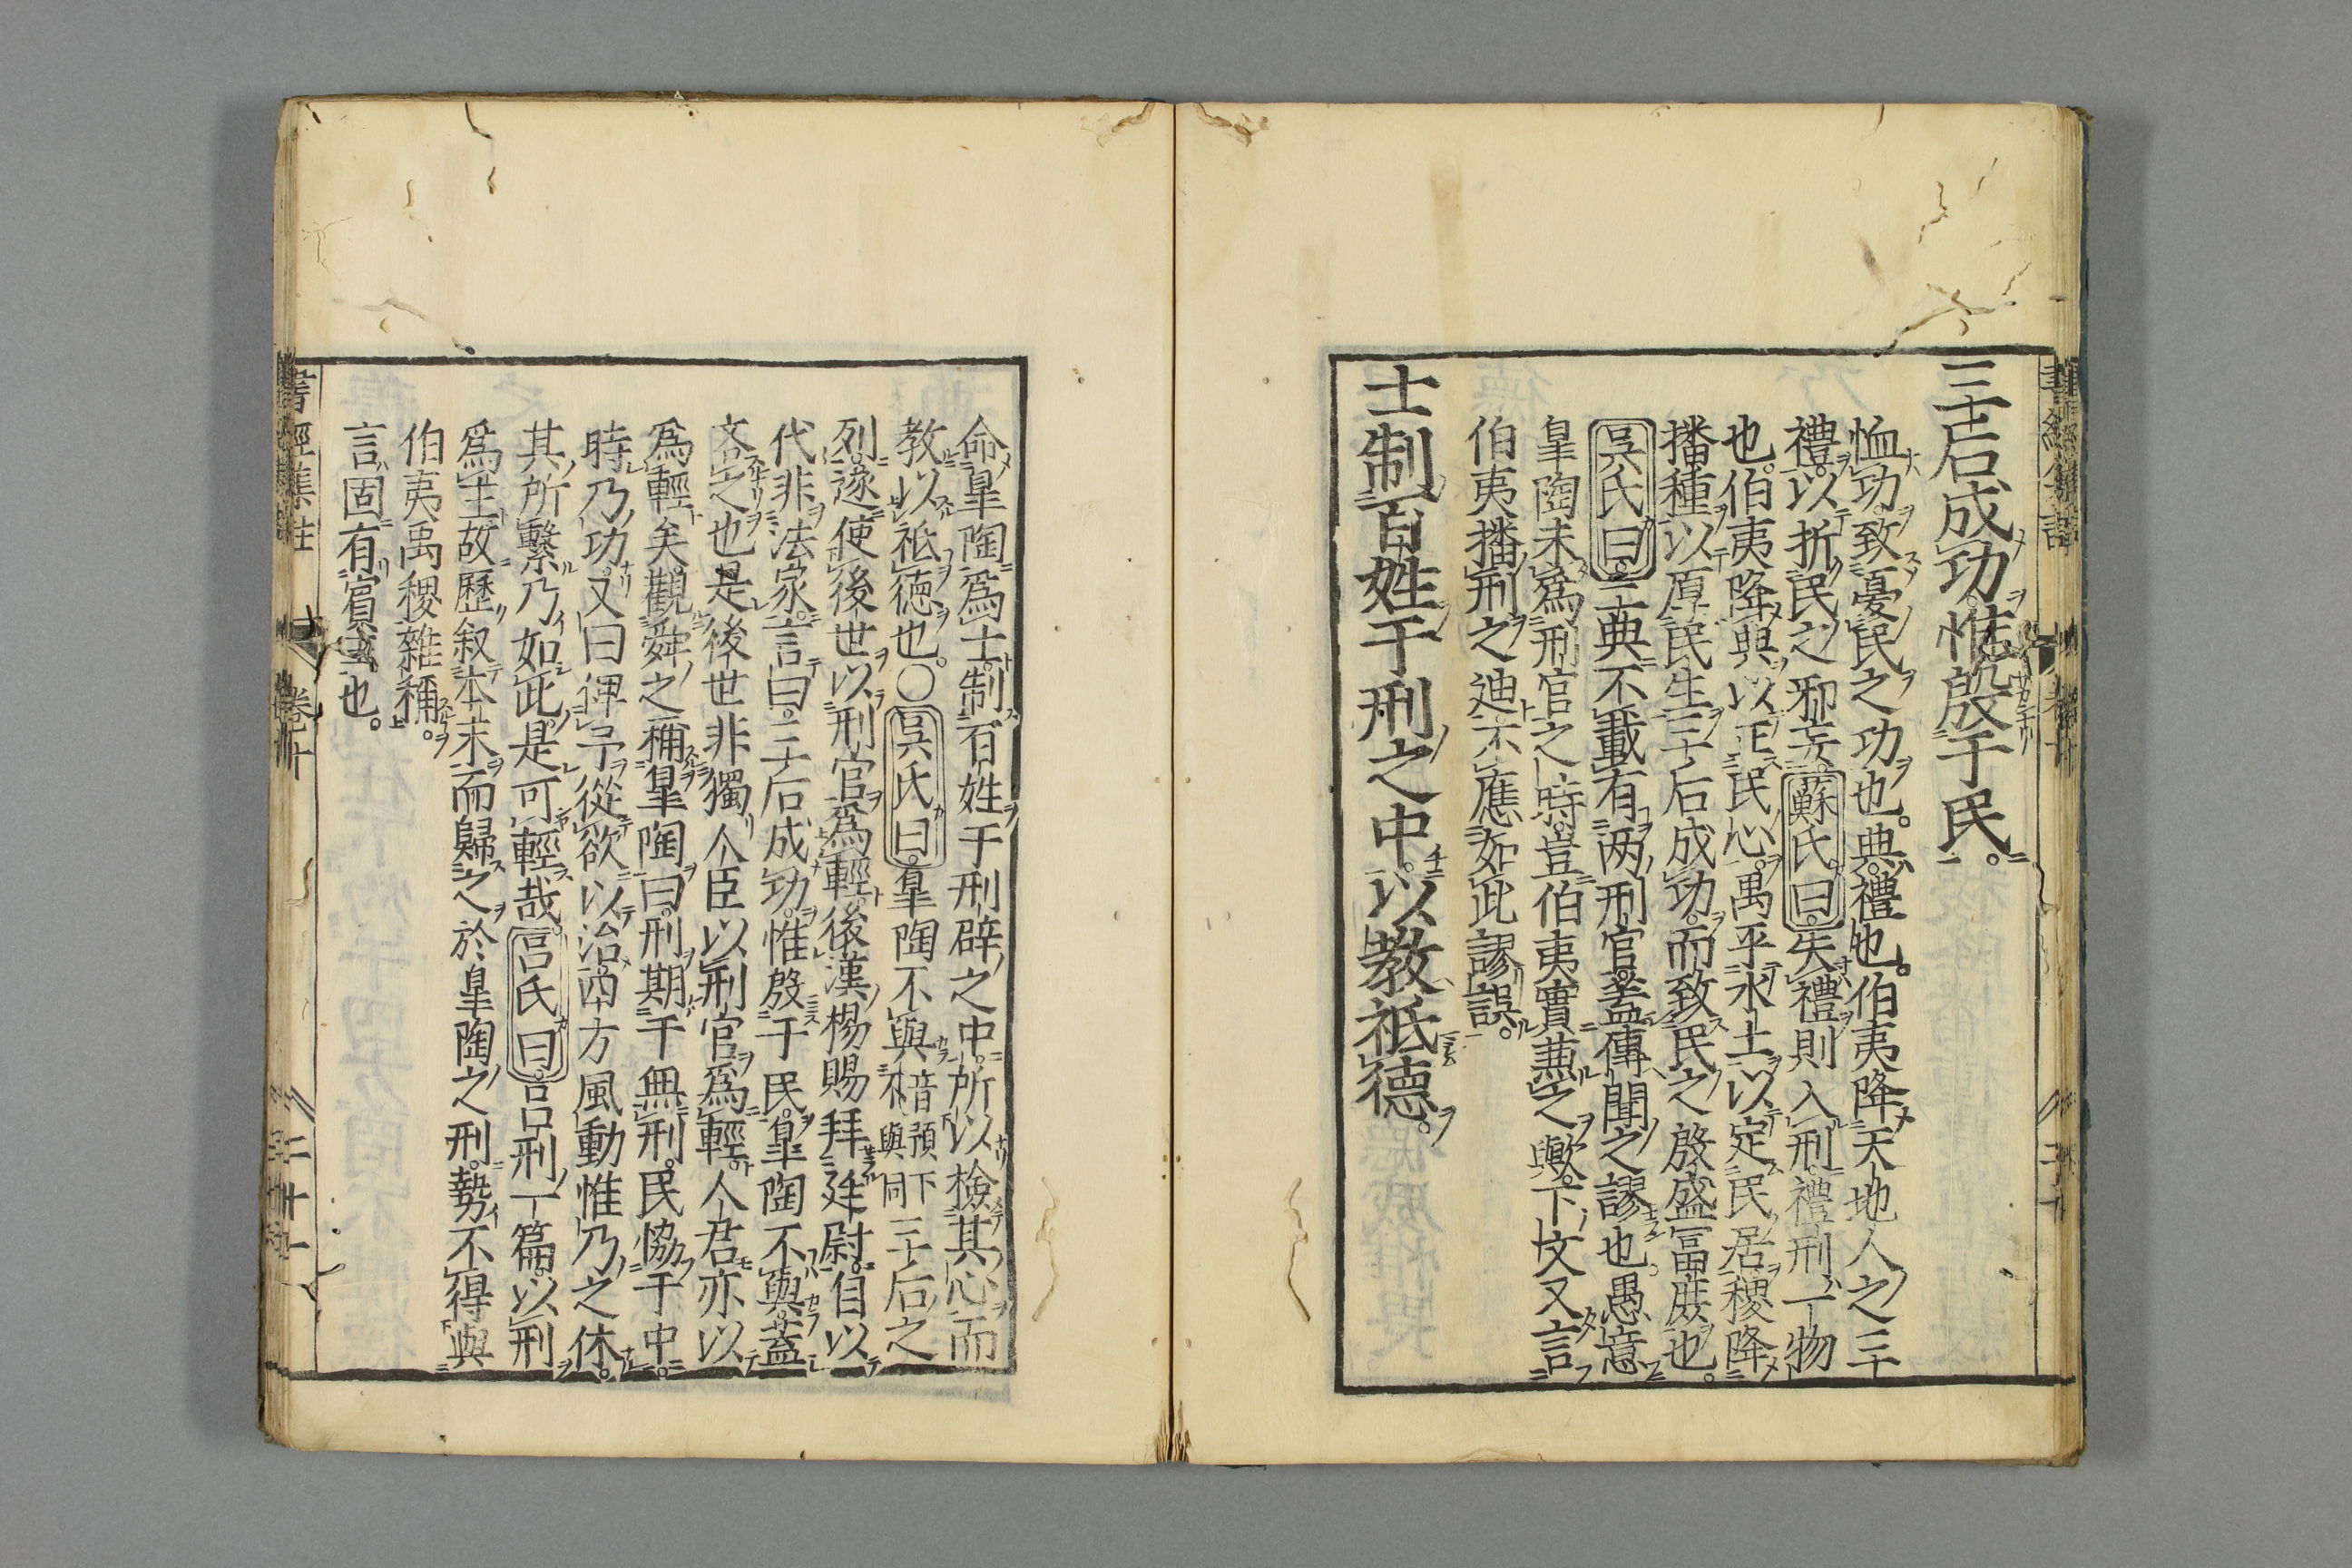 三后成功。惟殷于民。
恤功。致憂民之功也。典。禮也。伯夷降天地人之三
禮。以折民之邪妄。蘇氏曰。失禮則入刑。禮刑一物
也。伯夷降典。以正民心。禹平水土。以定民居。稷降
播種。以厚民生。三后成功。而致民之殷盛冨庶也。
吳氏曰。二典不載有兩刑官。蓋傳聞之謬也。愚意
皐陶未爲刑官之時。豈伯夷實兼之歟。下文又言
伯夷播刑之迪。不應如此謬誤。
士制百姓于刑之中。以教祗德。
命皐陶爲士。制百姓于刑辟之中。所以檢其心。而
教以祗德也。○吳氏曰。皐陶不與音預下同三后之
列。遂使後世以刑官爲輕。後漢楊賜拜廷尉。自以
代非法家。言曰。三后成功。惟殷于民。皐陶不與。蓋
吝之也。是後世非獨人臣以刑官爲輕。人君亦以
爲輕矣。觀舜之稱皐陶曰。刑期于無刑。民協于中。
時乃功。又曰俾予從欲以治。四方風動。惟乃之休。
其所繫乃如此。是可輕哉。呂氏曰。呂刑一篇。以刑
爲主。故歷叙本末。而歸之於皐陶之刑。勢不得與
伯夷禹稷雜稱。
言固有賓主也。
書經集註
卷十
二十一